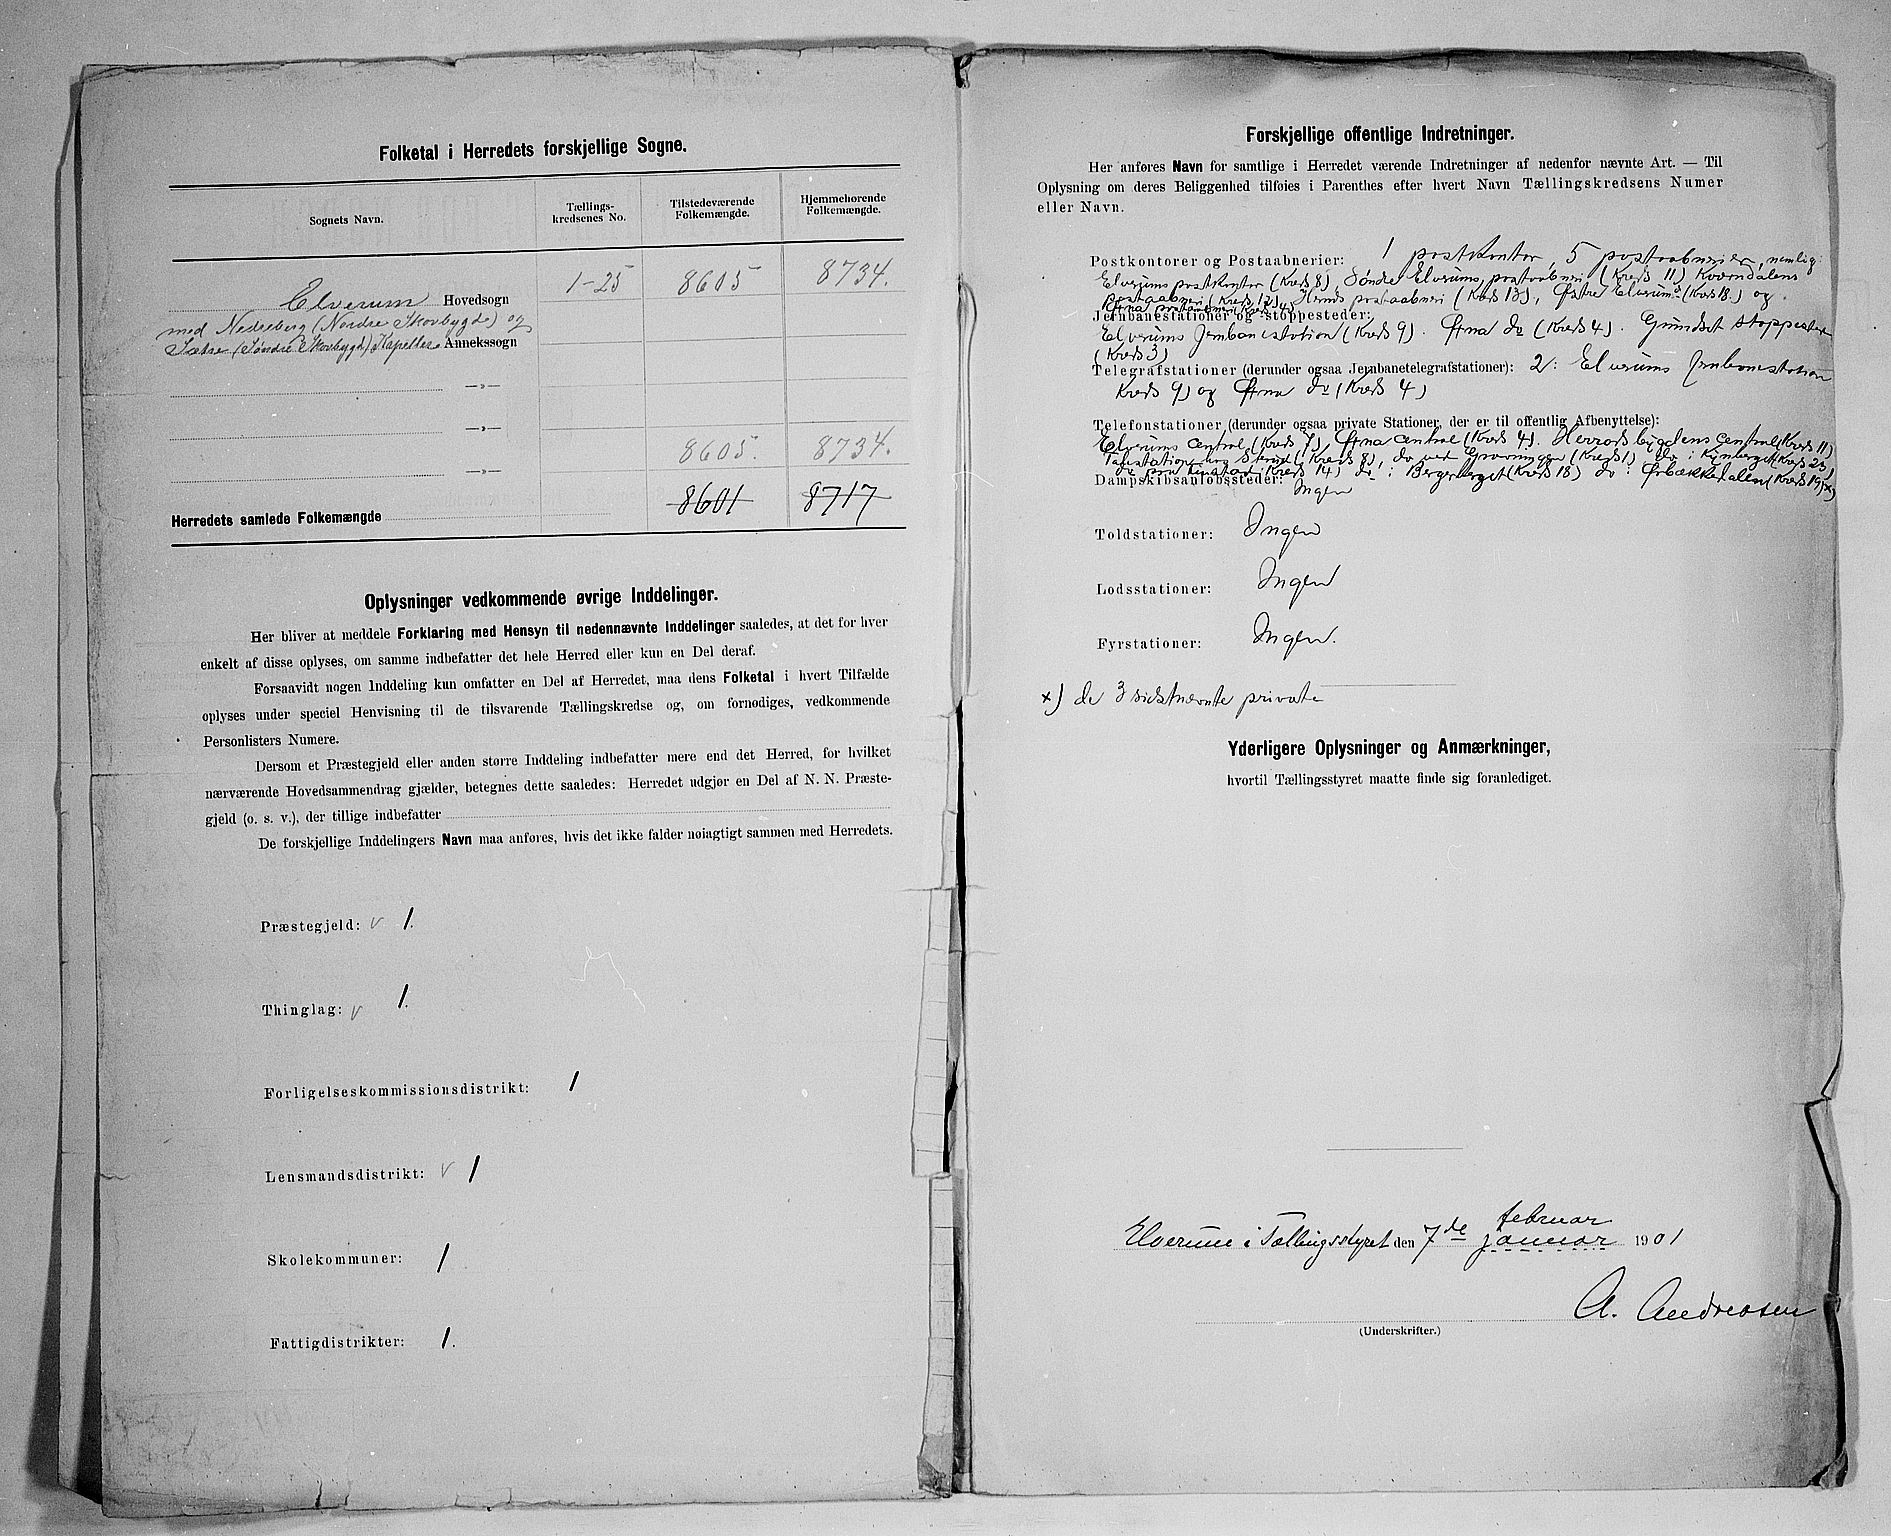 Folketal i Herredets forskjellige Sogne.
Sognets Navn.
Tællings-
kredsenes No.
Tilstedeværende
Folkemængde.
Hjemmehørende
Folkemængde.
Elverum Hovedsogn 1-25 8605 8734.
med Nedreberg (Nordre Skovbygde) og
Sætre (Søndre Skovbygd) Kapeller Annekssogn
—„—
—„—
8605. 8734.
—„—
Herredets samlede Folkemængde 8601 8717
Oplysninger vedkommende øvrige Inddelinger.
Her bliver at meddele Forklaring med Hensyn til nedennævnte Inddelinger saaledes, at det for hver
enkelt af disse oplyses, om samme indbefatter det hele Herred eller kun en Del deraf.
Forsaavidt nogen Inddeling kun omfatter en Del af Herredet, maa dens Folketal i hvert Tilfælde
oplyses under speciel Henvisning til de tilsvarende Tællingskredse og, om fornødiges, vedkommende
Personlisters Numere.
Dersom et Præstegjeld eller anden større Inddeling indbefatter mere end det Herred, for hvilket
nærværende Hovedsammendrag gjælder, betegnes dette saaledes: Herredet udgjør en Del af N. N. Præste-
gjeld (o. s. v.), der tillige indbefatter
De forskjellige Inddelingers Navn maa anføres, hvis det ikke falder nøiagtigt sammen med Herredets.
Præstegjeld: v 1.
Thinglag: v 1.
Forligelseskommissionsdistrikt: 1
Lensmandsdistrikt: v 1
Skolekommuner: 1
Fattigdistrikter: 1.
Forskjellige offentlige Indretninger.
Her anføres Navn for samtlige i Herredet værende Indretninger af nedenfor nævnte Art. — Til
Oplysning om deres Beliggenhed tilføies i Parenthes efter hvert Navn Tællingskredsens Numer
eller Navn.
Postkontorer og Postaabnerier: 1 postkontor, 5 postaabnerier, nemlig:
Elverums postkontor (Kreds 8), Søndre Elverums postaabneri (Kreds 11) Kværndalens
postaabneri (Kreds 12), Strands postaabneri (Kreds 13), Østre Elverums (Kreds 18.) og
Jernbanestationer og stoppesteder:
Elverums Jernbanestation (Kreds 9). Øxna do (Kreds 4). Grundset stoppested
(Kreds 3)
Telegrafstationer (derunder ogsaa Jernbanetelegrafstationer): 2: Elverums Jernbanestation
Kreds 9) og Øxna do (Kreds 4)
Telefonstationer (derunder ogsaa private Stationer, der er til offentlig Afbenyttelse):
Elverums central (Kreds 7), Øxna central (Kreds 4). Hernes bygdens central (Kreds 11)
Talestation paa Strand (Kreds 8), do ved Grønningen (Kreds 1) do i Kynberget (Kreds 23)
(Kreds 14) do i Bergeberget (Kreds 18) do i Ørbækkedalen (Kreds 19) x)
Dampskibsanløbssteder: Ingen
Toldstationer: Ingen
Lodsstationer: Ingen
Fyrstationer: Ingen.
x) de 3 sidstnævnte private
Yderligere Oplysninger og Anmærkninger,
hvortil Tællingsstyret maatte finde sig foranlediget.
februar
Elverum i Tællingsstyret den 7de januar 1901
A. Andreasen
(Underskrifter.)